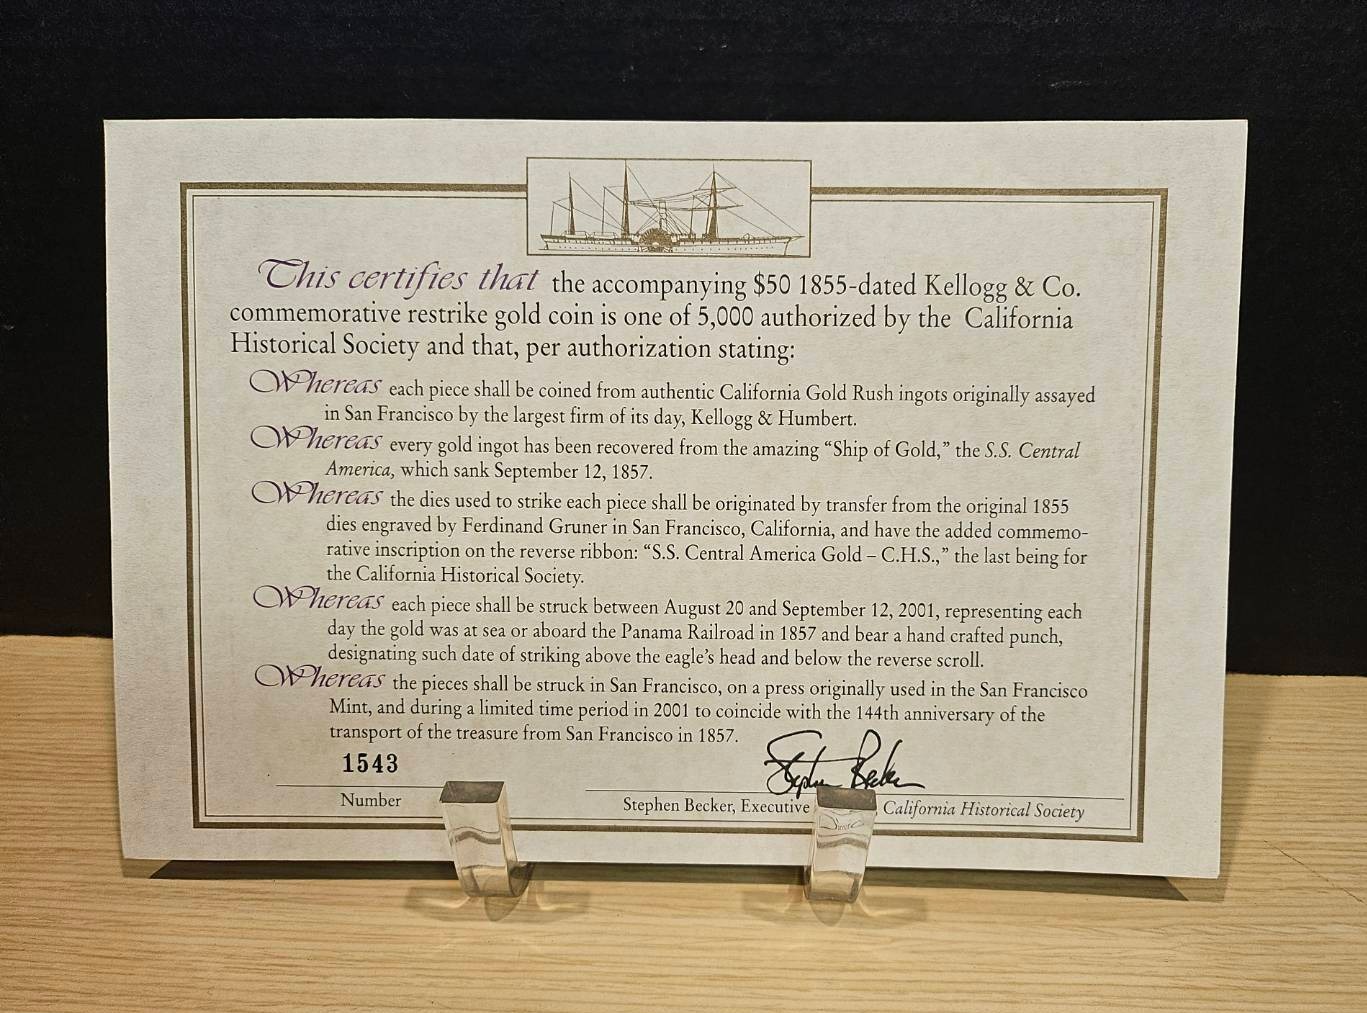 This certifies that the accompanying $50 1855-dated Kellogg & Co.
commemorative restrike gold coin is one of 5,000 authorized by the California
Historical Society and that, per authorization stating:
Whereas each piece shall be coined from authentic California Gold Rush ingots originally assayed
in San Francisco by the largest firm of its day, Kellogg & Humbert.
Whereas every gold ingot has been recovered from the amazing “Ship of Gold,” the S.S. Central
America, which sank September 12, 1857.
Whereas the dies used to strike each piece shall be originated by transfer from the original 1855
dies engraved by Ferdinand Gruner in San Francisco, California, and have the added commemo-
rative inscription on the reverse ribbon: “S.S. Central America Gold – C.H.S.,” the last being for
the California Historical Society.
Whereas each piece shall be struck between August 20 and September 12, 2001, representing each
day the gold was at sea or aboard the Panama Railroad in 1857 and bear a hand crafted punch,
designating such date of striking above the eagle’s head and below the reverse scroll.
Whereas the pieces shall be struck in San Francisco, on a press originally used in the San Francisco
Mint, and during a limited time period in 2001 to coincide with the 144th anniversary of the
transport of the treasure from San Francisco in 1857.
1543
Stephen Becker
Number
Stephen Becker, Executive California Historical Society